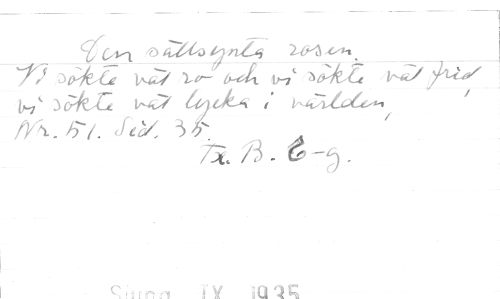 Den sällsynta rosen
Vi sökte vår ro och vi sökte vår frid,
vi sökte vår lycka i världen,
Nr. 51. Sid. 35.
Tx. B. E-g.
Sjung IX 1935